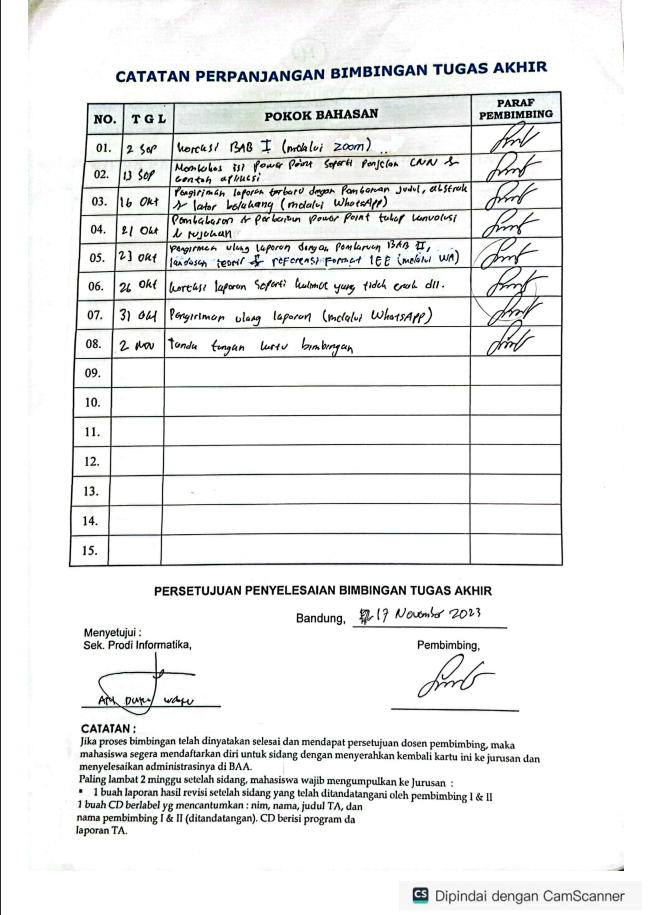 CATATAN PERPANJANGAN BIMBINGAN TUGAS AKHIR
NO. TGL POKOK BAHASAN PARAF PEMBIMBING
01. 2 Sep koreksi BAB I (melalui zoom)
02. 13 Sep Membahas isi Power Point seperti Penjelasan CNN &
contoh aplikasi
03. 16 Okt Pengiriman laporan terbaru dengan Pembaruan Judul, abstrak
& latar belakang (melalui WhatsApp)
04. 21 Okt Pembahasan & Perbaikan Power Point tahap konvolusi
& rujukan
05. 23 Okt Pengiriman ulang laporan dengan Pembaruan BAB II,
landasan teori & referensi format IEE (melalui WA)
06. 26 Okt koreksi laporan seperti kalimat yang tidak enak dll.
07. 31 Okt Pengiriman ulang laporan (melalui WhatsApp)
08. 2 Nov Tanda tangan kartu bimbingan
09.
10.
11.
12.
13.
14.
15.
PERSETUJUAN PENYELESAIAN BIMBINGAN TUGAS AKHIR
Bandung, 17 November 2023
Menyetujui :
Sek. Prodi Informatika,
Pembimbing,
CATATAN :
Jika proses bimbingan telah dinyatakan selesai dan mendapat persetujuan dosen pembimbing, maka
mahasiswa segera mendaftarkan diri untuk sidang dengan menyerahkan kembali kartu ini ke jurusan dan
menyelesaikan administrasinya di BAA.
Paling lambat 2 minggu setelah sidang, mahasiswa wajib mengumpulkan ke Jurusan :
▪ 1 buah laporan hasil revisi setelah sidang yang telah ditandatangani oleh pembimbing I & II
1 buah CD berlabel yg mencantumkan : nim, nama, judul TA, dan
nama pembimbing I & II (ditandatangan). CD berisi program da
laporan TA.
CS Dipindai dengan CamScanner